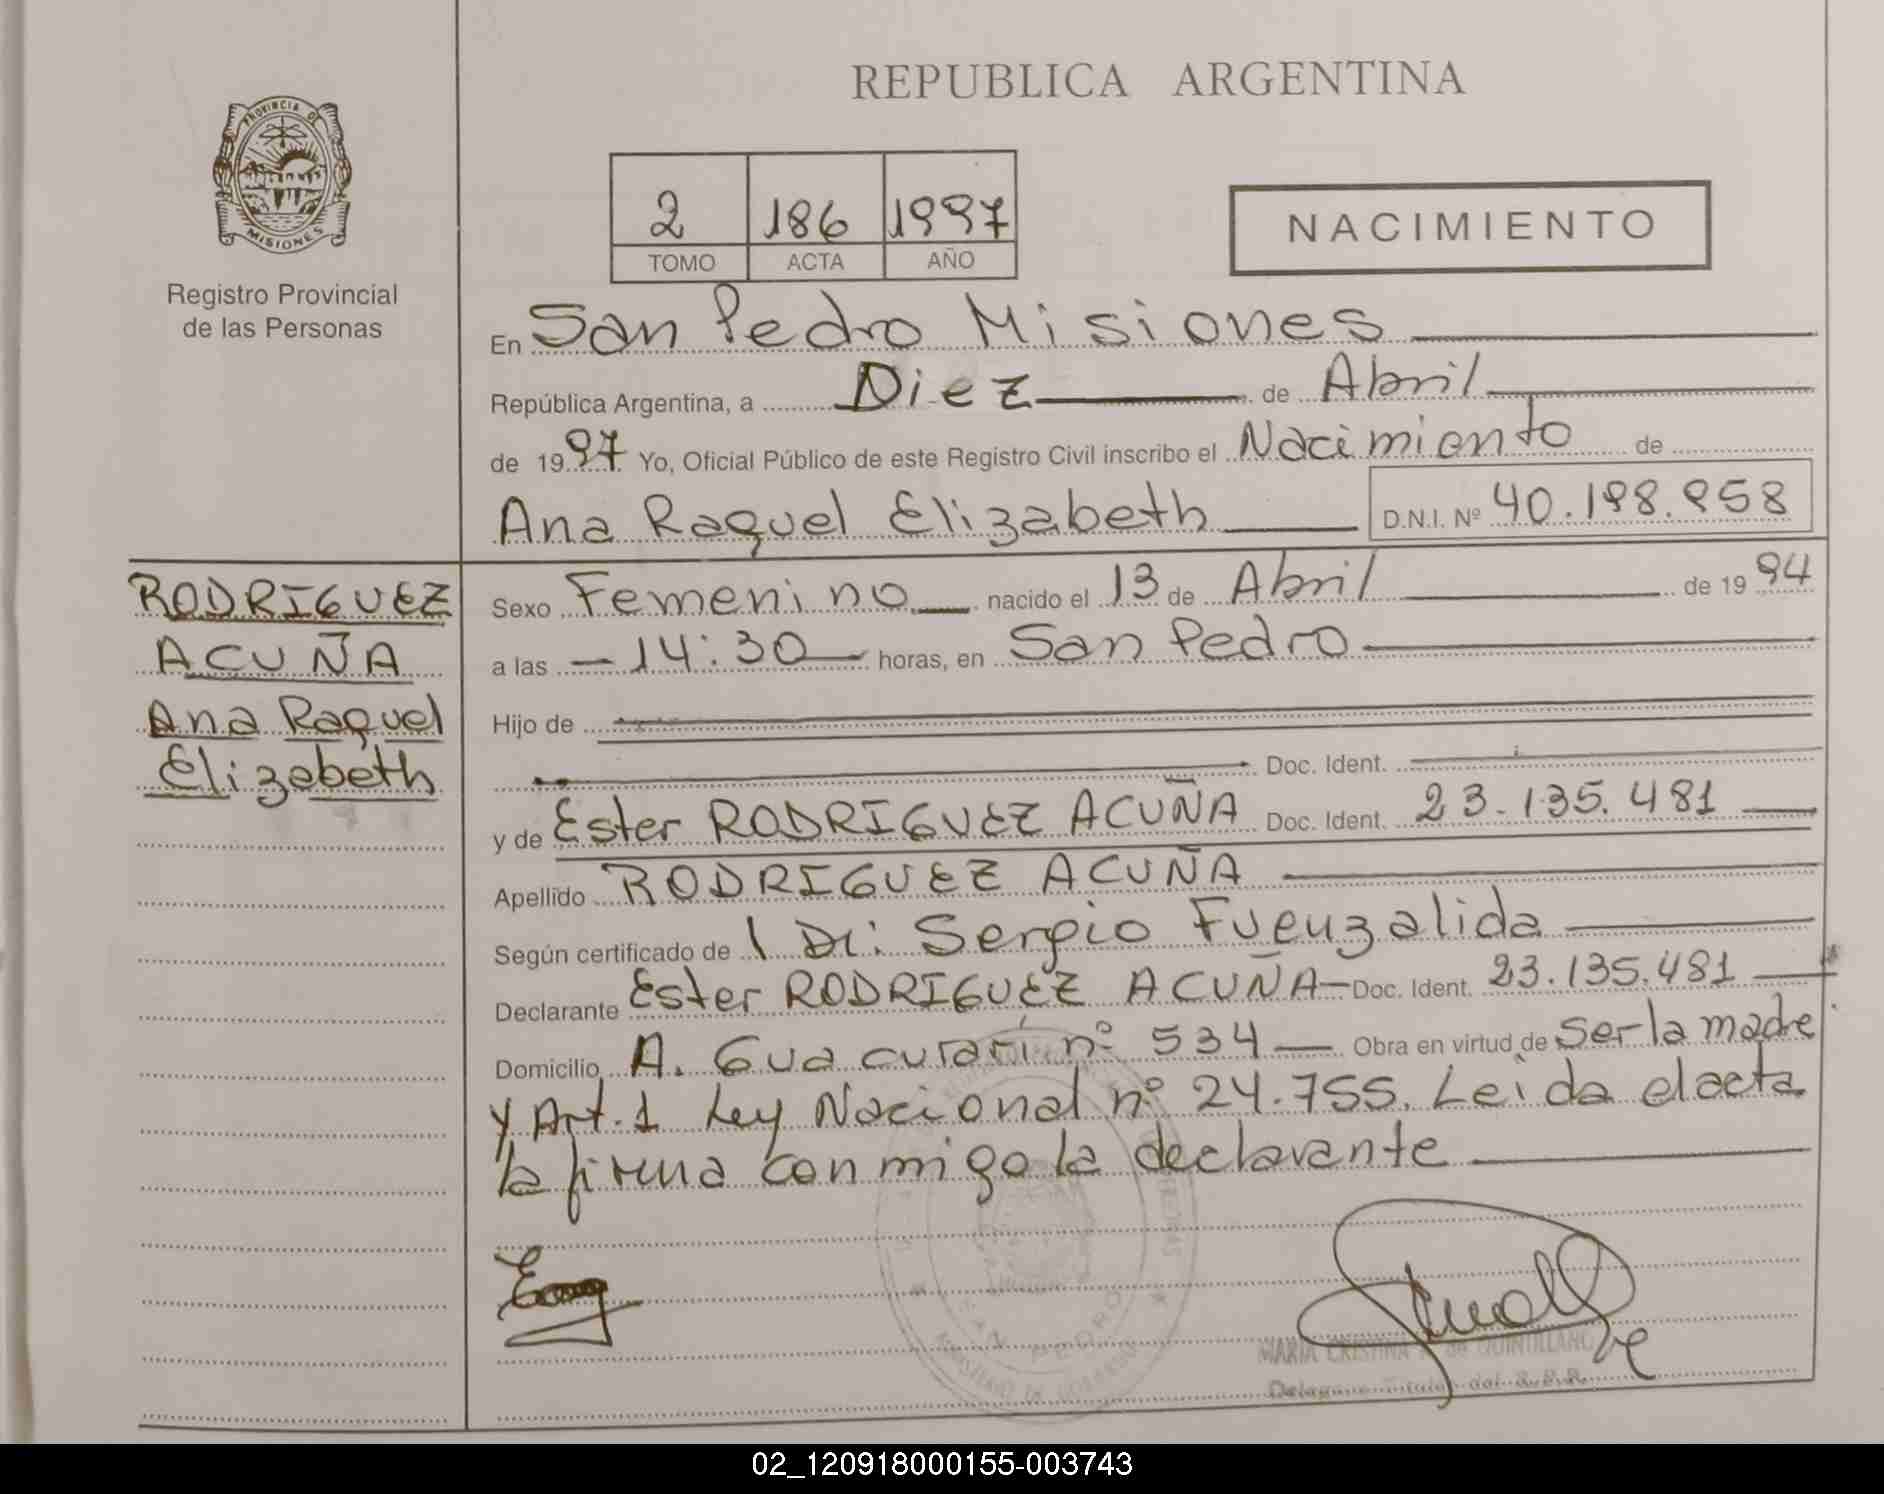 REPUBLICA ARGENTINA
PROVINCIA DE
MISIONES
Registro Provincial
de las Personas
2 186 1997
TOMO ACTA AÑO
NACIMIENTO
En San Pedro Misiones
República Argentina, a Diez de Abril
de 1997 Yo, Oficial Público de este Registro Civil inscribo el Nacimiento de
Ana Raquel Elizabeth D.N.I. Nº 40.198.958
RODRIGUEZ
ACUÑA
Ana Raquel
Elizabeth
Sexo Femenino nacido el 13 de Abril de 1994
a las 14:30 horas, en San Pedro
Hijo de
Doc. Ident.
y de Ester RODRIGUEZ ACUÑA Doc. Ident. 23.135.481
Apellido RODRIGUEZ ACUÑA
Según certificado de Dr: Sergio Fuenzalida
Declarante Ester RODRIGUEZ ACUÑA Doc. Ident. 23.135.481
Domicilio A. Guacurarí nº 534 Obra en virtud de Ser la madre
y Art. 1 Ley Nacional nº 24.755. Leida el acta
la firma conmigo la declarante
SAN PEDRO
MARIA CRISTINA de QUINTILLANO
02_120918000155-003743